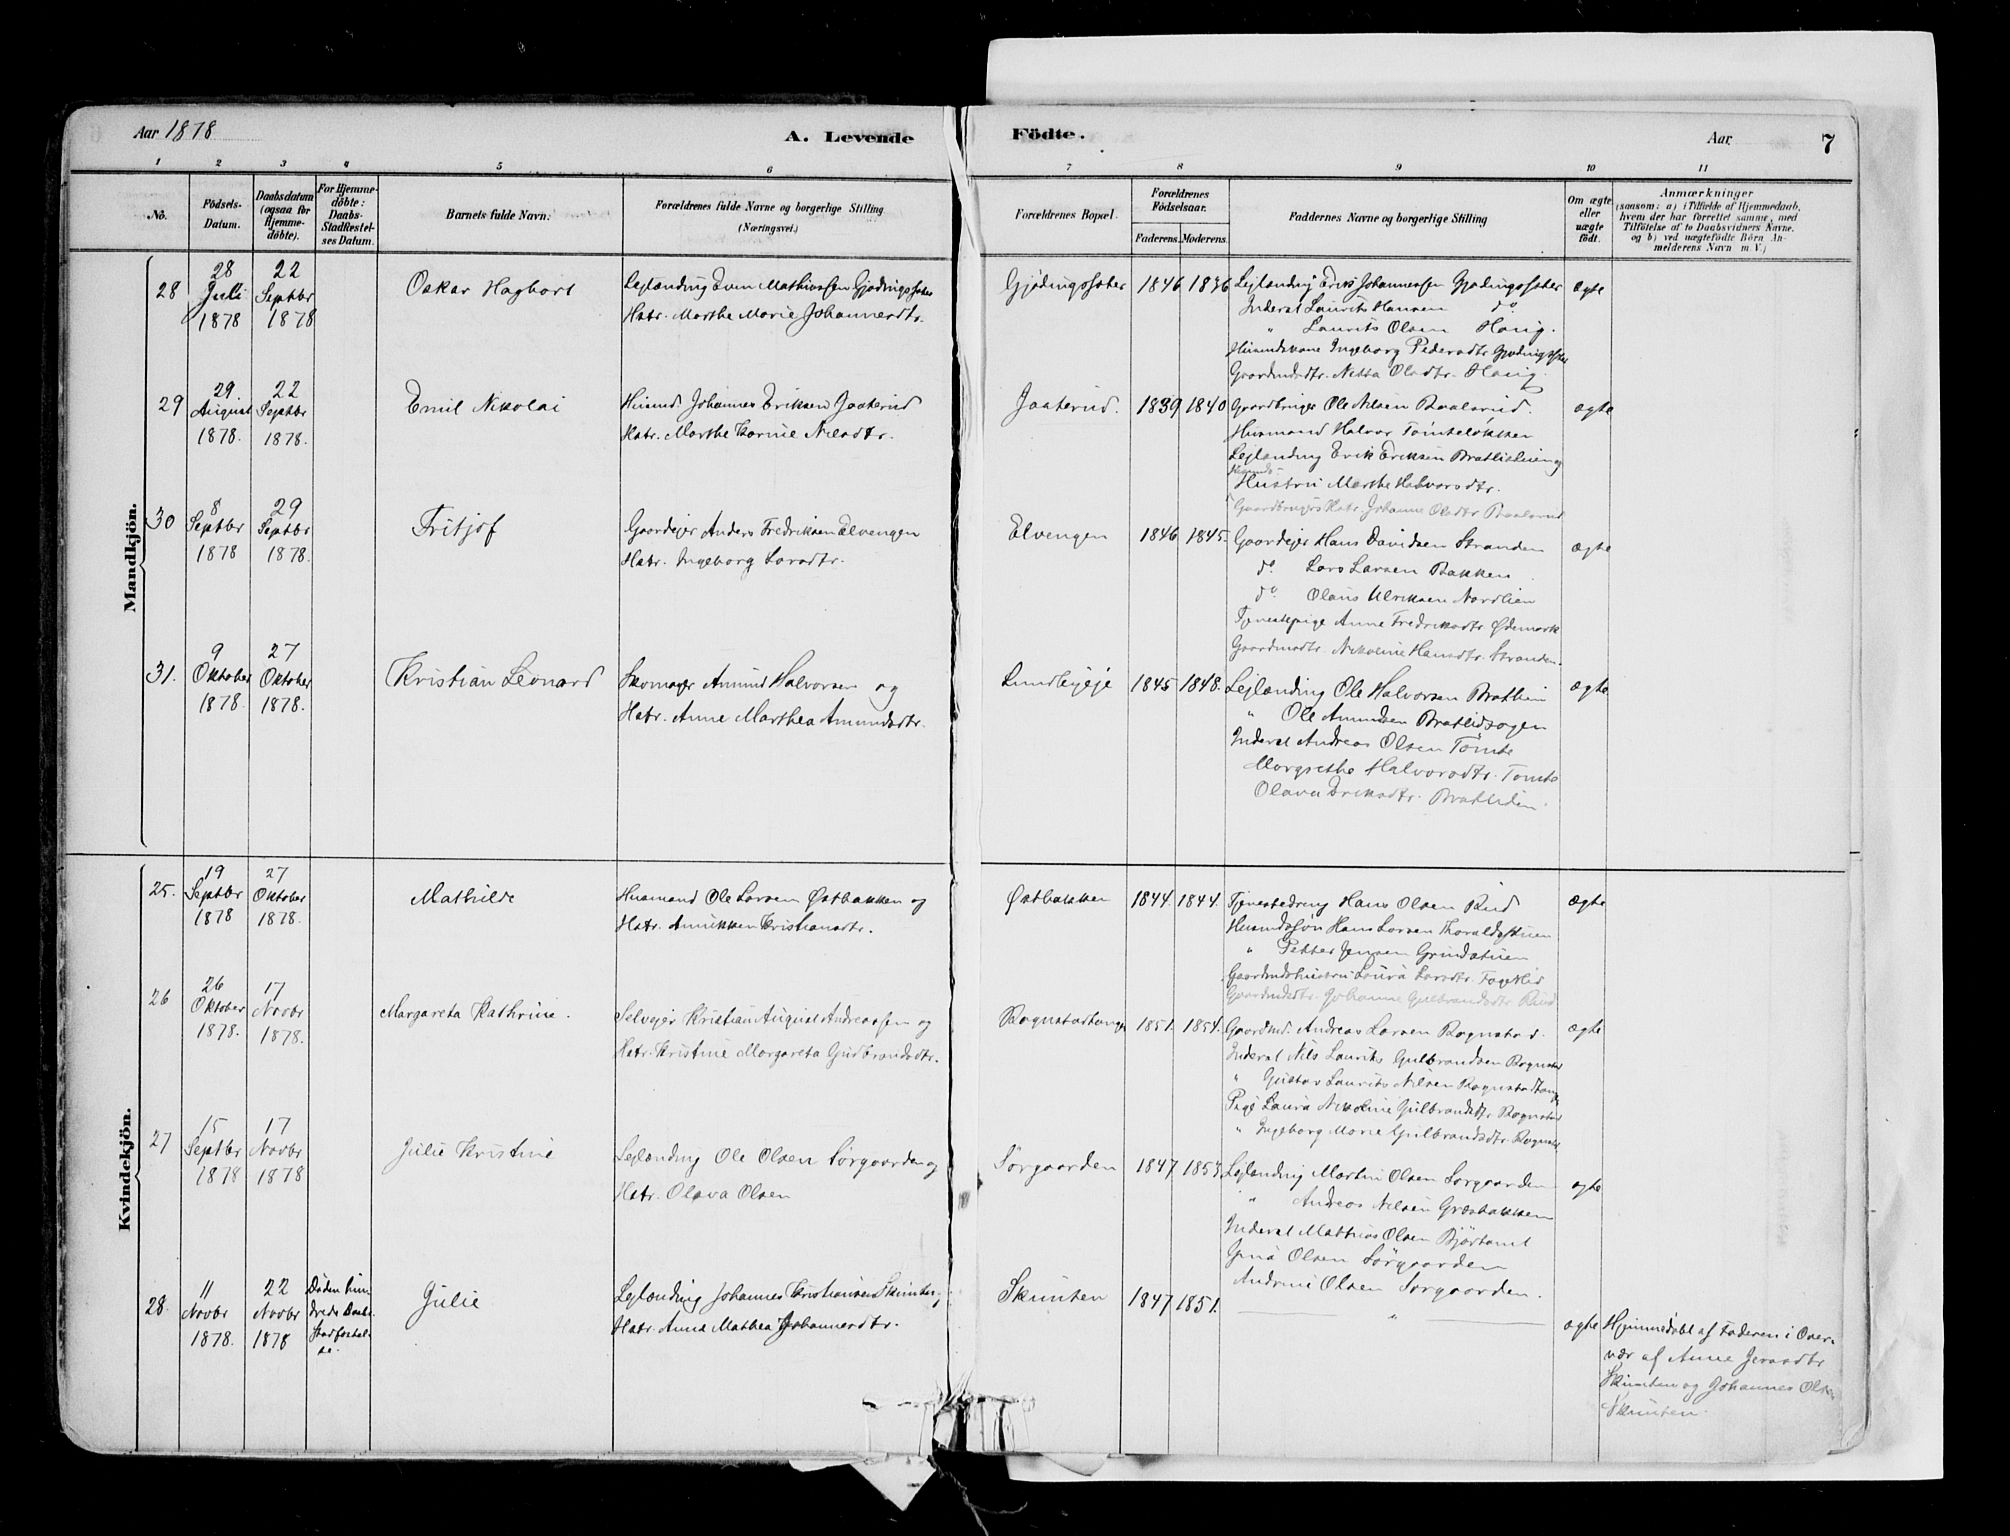 Aar 1878
A. Levende
Födte.
Aar
7
1 2 3 4 5 6 7 8 9 10 11
No.
Födsels-
Datum.
Daabsdatum
(ogsaa for
Hjemme-
döbte).
For Hjemme-
döbte:
Daabs-
Stadfæstel-
ses Datum.
Barnets fulde Navn.
Forældrenes fulde Navne og borgerlige Stilling
(Næringsvei.)
Forældrenes Bopæl.
Forældrenes
Födselsaar.
Faderens. Moderens.
Faddernes Navne og borgerlige Stilling
Om ægte
eller
uægte
födt.
Anmærkninger
(saasom: a) i Tilfælde af Hjemmedaab,
hvem der har forrettet samme, med
Tilföielse af to Daabsvidners Navne.
og b) ved uægtefödte Börn An-
melderens Navn m. V.)
Mandkjön.
28
28
Juli
1878
22
Septbr
1878
Oskar Hagbart
Lejlænding Even Mathiassen Gjødingssæter
Hstr. Marthe Marie Johannesdtr.
Gjødingssæter
1846 1836
Lejlænding Erik Johannessen Gjødingssæter
Inderst Laurits Hansen do
" Laurits Olsen Haug.
Husmndskone Ingeborg Pedersdtr Gjødingssæt
Gaardmdsdtr. Netta Olsdtr. Haug.
ægte
29
29.
August
1878.
22
Septbr
1878.
Emil Nikolai
Husmd. Johannes Eriksen Jaaterud
Hstr. Marthe Karine Nilsdtr.
Jaaterud.
1839 1840
Gaardbruger Ole Nilsen Baalsrud.
Husmand Halvor Tömteløkken
Lejlænding Erik Eriksen Bratlieien og
Husmds-
Hustru Marthe Halvorsdtr.
Gaardbrugers Hstr. Johanne Olsdtr Baalsrud
ægte
30
8
Septbr
1878
29
Septbr
1878.
Fritjof
Gaardejer Anders Fredriksen Elvengen
Hstr. Ingeborg Larsdtr.
Elvengen
1846 1845.
Gaardejer Hans Davidsen Stranden
do Lars Larsen Bakken
do Olaus Ulriksen Nordlien
Tjenestepige Anne Fredriksdtr Ødemark
Gaardmdsdtr. Nikoline Hansdtr. Stranden.
ægte
31.
9
Oktober
1878.
27
Oktober
1878.
Kristian Leonard
Skomager Amund Halvorsen og
Hstr. Anne Marthea Amundsdtr.
Lundbyeje
1845 1848.
Lejlænding Ole Halvorsen Bratlien
" Ole Amundsen Bratlidsagen
Inderst Andreas Olsen Tömte
Margrethe Halvorsdtr. Tomte
Olava Eriksdtr. Bratliden.
ægte
Kvindekjön.
25.
19
Septbr
1878
27
Oktober
1878.
Mathilde
Husmand Ole Larsen Østbakken og
Hstr. Annikken Kristiansdtr.
Østbakken
1844. 1844.
Tjenestedreng Hans Olsen Rud
Husmdssøn Hans Larsen Thoraldsstuen
" Petter Jensen Grindstuen
Gaardmdshustru Laura Larsdtr. Fagerlid
Gaardmdsdtr. Johanne Gulbrandsdtr. Rud
ægte
26
26
Oktober
1878.
17
Novbr
1878.
Margareta Kathrine.
Selvejer Kristian August Andreassen og
Hstr. Kristine Margareta Gudbrandsdtr.
Rognstadtangen
1851. 1854.
Gaardmd. Andreas Larsen Rognstad.
Inderst Nils Laurits Gulbrandsen Rognstad
" Gustav Laurits Nilsen Rognstadtang
Pige Laura Nikoline Gulbrandsdtr Rognstad
" Ingeborg Marie Gulbrandsdtr. Rognstad
ægte
27
15
Septbr
1878
17
Novbr
1878
Julie Kristine
Lejlænding Ole Olsen Sørgaarden og
Hstr. Olava Olsen
Sørgaarden
1847 1853.
Lejlænding Martin Olsen Sørgaarden
" Andreas Nilsen Græsbakken
Inderst Mathias Olsen Bjørtomt
Gina Olsen Sörgaarden
Andrine Olsen Sørgaarden.
ægte
28.
11
Novbr
1878.
22
Novbr
1878
Døden hin-
drede Daabs-
Stadfæstel-
se.
Julie
Lejlænding Johannes Kristiansen Skunten og
Hstr. Anne Mathea Johannesdtr.
Skunten
1847 1851.
"
ægte
Hjemmedøbt af Faderen i Over-
vær af Anne Jensdtr
Skunten og Johannes Olsen
Skunten.